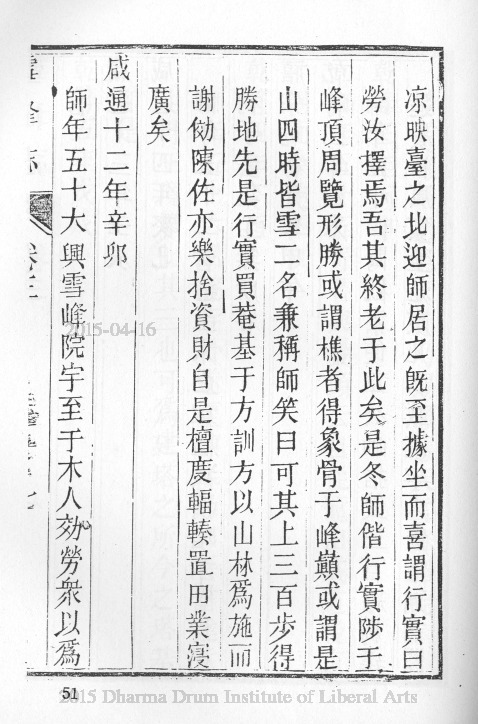 凉映臺之北迎師居之旣至據坐而喜謂行實曰
勞汝擇焉吾其終老于此矣是冬師偕行實陟于
峰頂周覽形勝或謂樵者得象骨于峰巓或謂是
山四時皆雪二名兼稱師笑曰可其上三百步得
勝地先是行實買菴基于方訓方以山林爲施而
謝効陳佐亦樂捨資財自是檀度輻輳置田業寖
廣矣
咸通十二年辛卯
師年五十大興雪峰院宇至于木人効勞衆以爲
2015-04-16
51
2015 Dharma Drum Institute of Liberal Arts